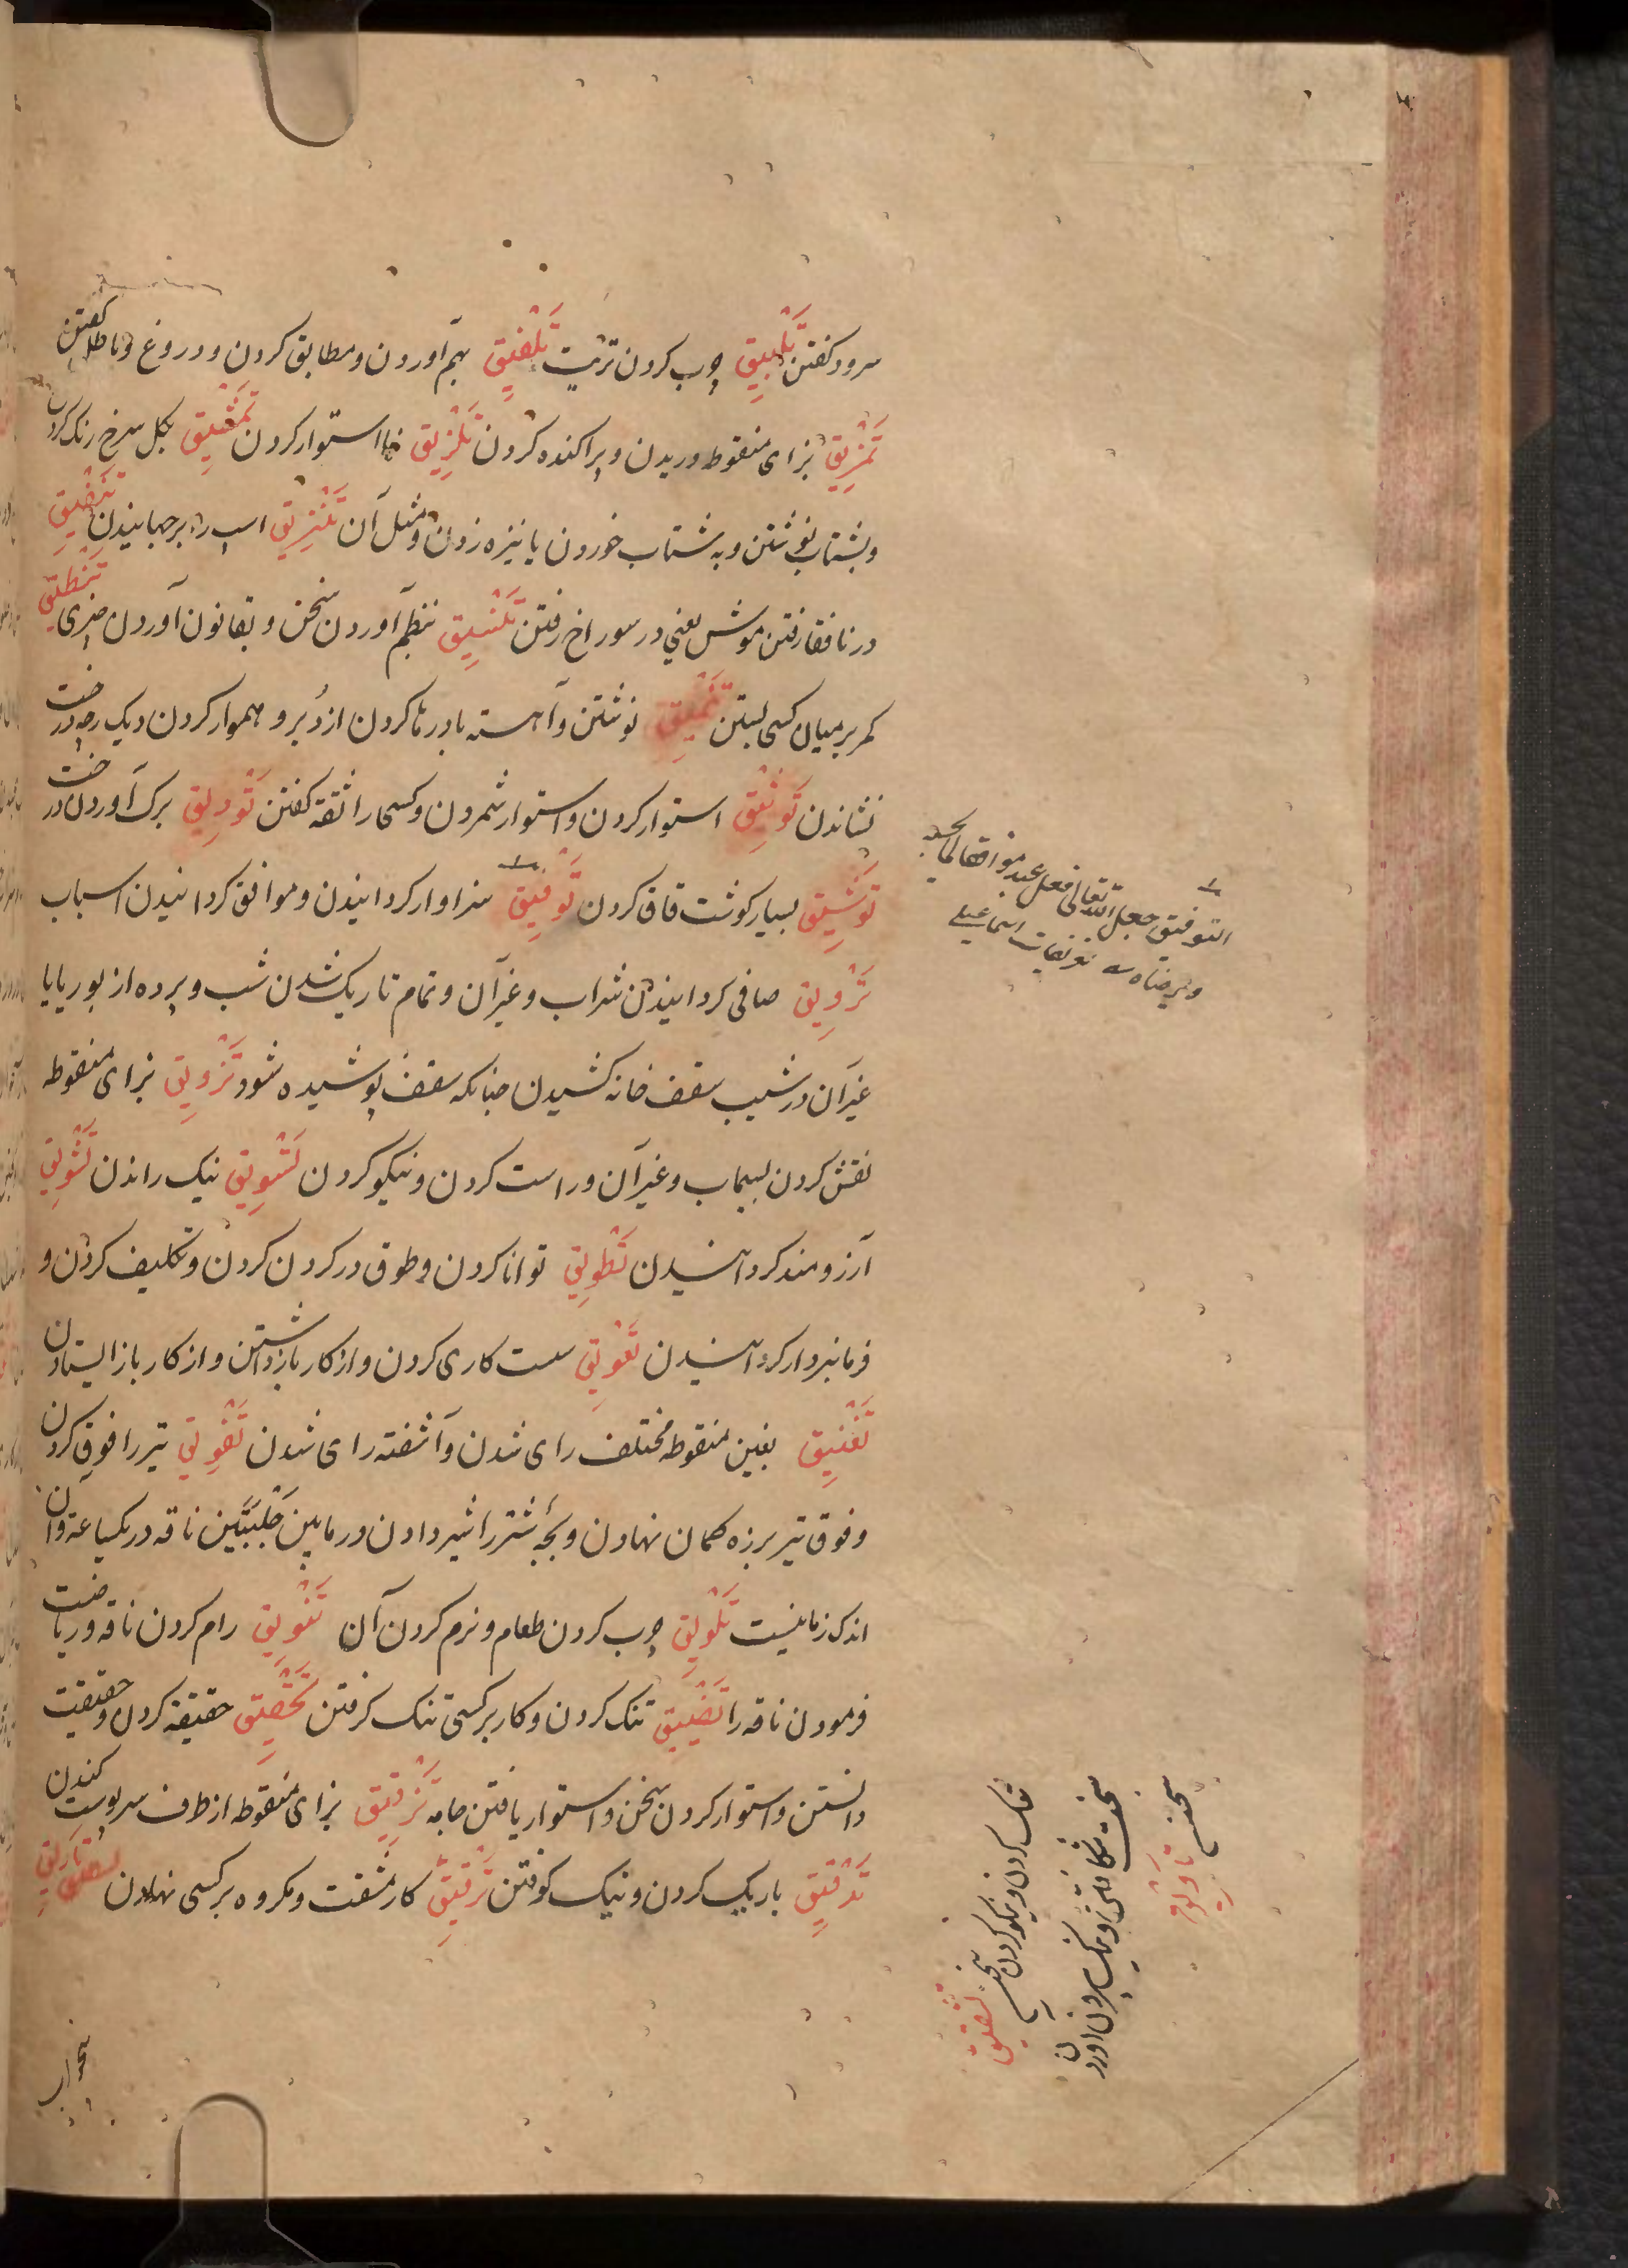 سرود کفتن تَلْبِیق چرب کردن تریت تَلْفِیق بهم آوردن و مطابق کردن و دروغ و باطل کفتن
تَمْزِیق بزای منقوطه دریدن و پراکنده کردن تَلْزِیق استوار کردن تَمْشِیق بکل سرخ رنک کردن
و بشتاب نوشتن و به شتاب خوردن یا نیزه زدن و مثل آن تَنْزِیق اسب را برجهانیدن تَنْفِیق
در نافقا رفتن موش یعنی در سوراخ رفتن تَنْسِیق بنظم آوردن سخن و بقانون آوردن چیزی تَنْطِیق
کمر بر میان کسی بستن تَنْمِیق نوشتن و آهسته باد رها کردن از دُبر و هموار کردن و یک رجه درخت
نشاندن تَوْثِیق استوار کردن و استوار شمردن و کسی را ثقة کفتن تَوْرِیق برک آوردن درخت
تَوْشِیق بسیار کوشت قاق کردن تَوْفِیق سزاوار کردانیدن و موافق کردانیدن اسباب
تَرْوِیق صافی کردانیدن شراب و غیر آن و تمام تاریک شدن شب و پرده از بوریا یا
غیر آن در شیب سقف خانه کشیدن چنانکه سقف پوشیده شود تَزْوِیق بزای منقوطه
نقش کردن بسیماب و غیر آن و راست کردن و نیکو کردن تَسْوِیق نیک راندن تَشْوِیق
آرزومند کردانیدن تَطْوِیق توانا کردن و طوق در کردن کردن و تکلیف کردن و
فرمانبردار کردانیدن تَعْوِیق سست کاری کردن و از کار بازداشتن و از کار باز ایستادن
تَغْنِیق بغین منقوطه مختلف رای شدن و آشفته رای شدن تَفْوِیق تیر را فوق کردن
و فوق تیر بر زه کمان نهادن و بچهٔ شتر را شیر دادن در مابین حَلْبَتَین ناقه در یکساعة و آن
اندک زمانیست تَلْوِیق چرب کردن طعام و نرم کردن آن تَنْوِیق رام کردن ناقه و ریاضت
فرمودن ناقه را تَضْیِیق تنک کردن و کار بر کسی تنک کرفتن تَحْقِیق حقیقة کردن و حقیقت
دانستن و استوار کردن سخن و استوار یافتن جامه تَزْقِیق بزای منقوطه از طرف سر پوست کندن
تَدْقِیق باریک کردن و نیک کوفتن تَرْقِیق کار مشقت و مکروه بر کسی نهادن
التوفیق جعل الله تعالی فعل عبده موافقا لما یحبه
و یرضاه تعریفات اسماعیلی
تنک کردن و نیکو کردن سخن تَشْقِیق
سخت شکافتن و نیک بیرون آوردن
سخن